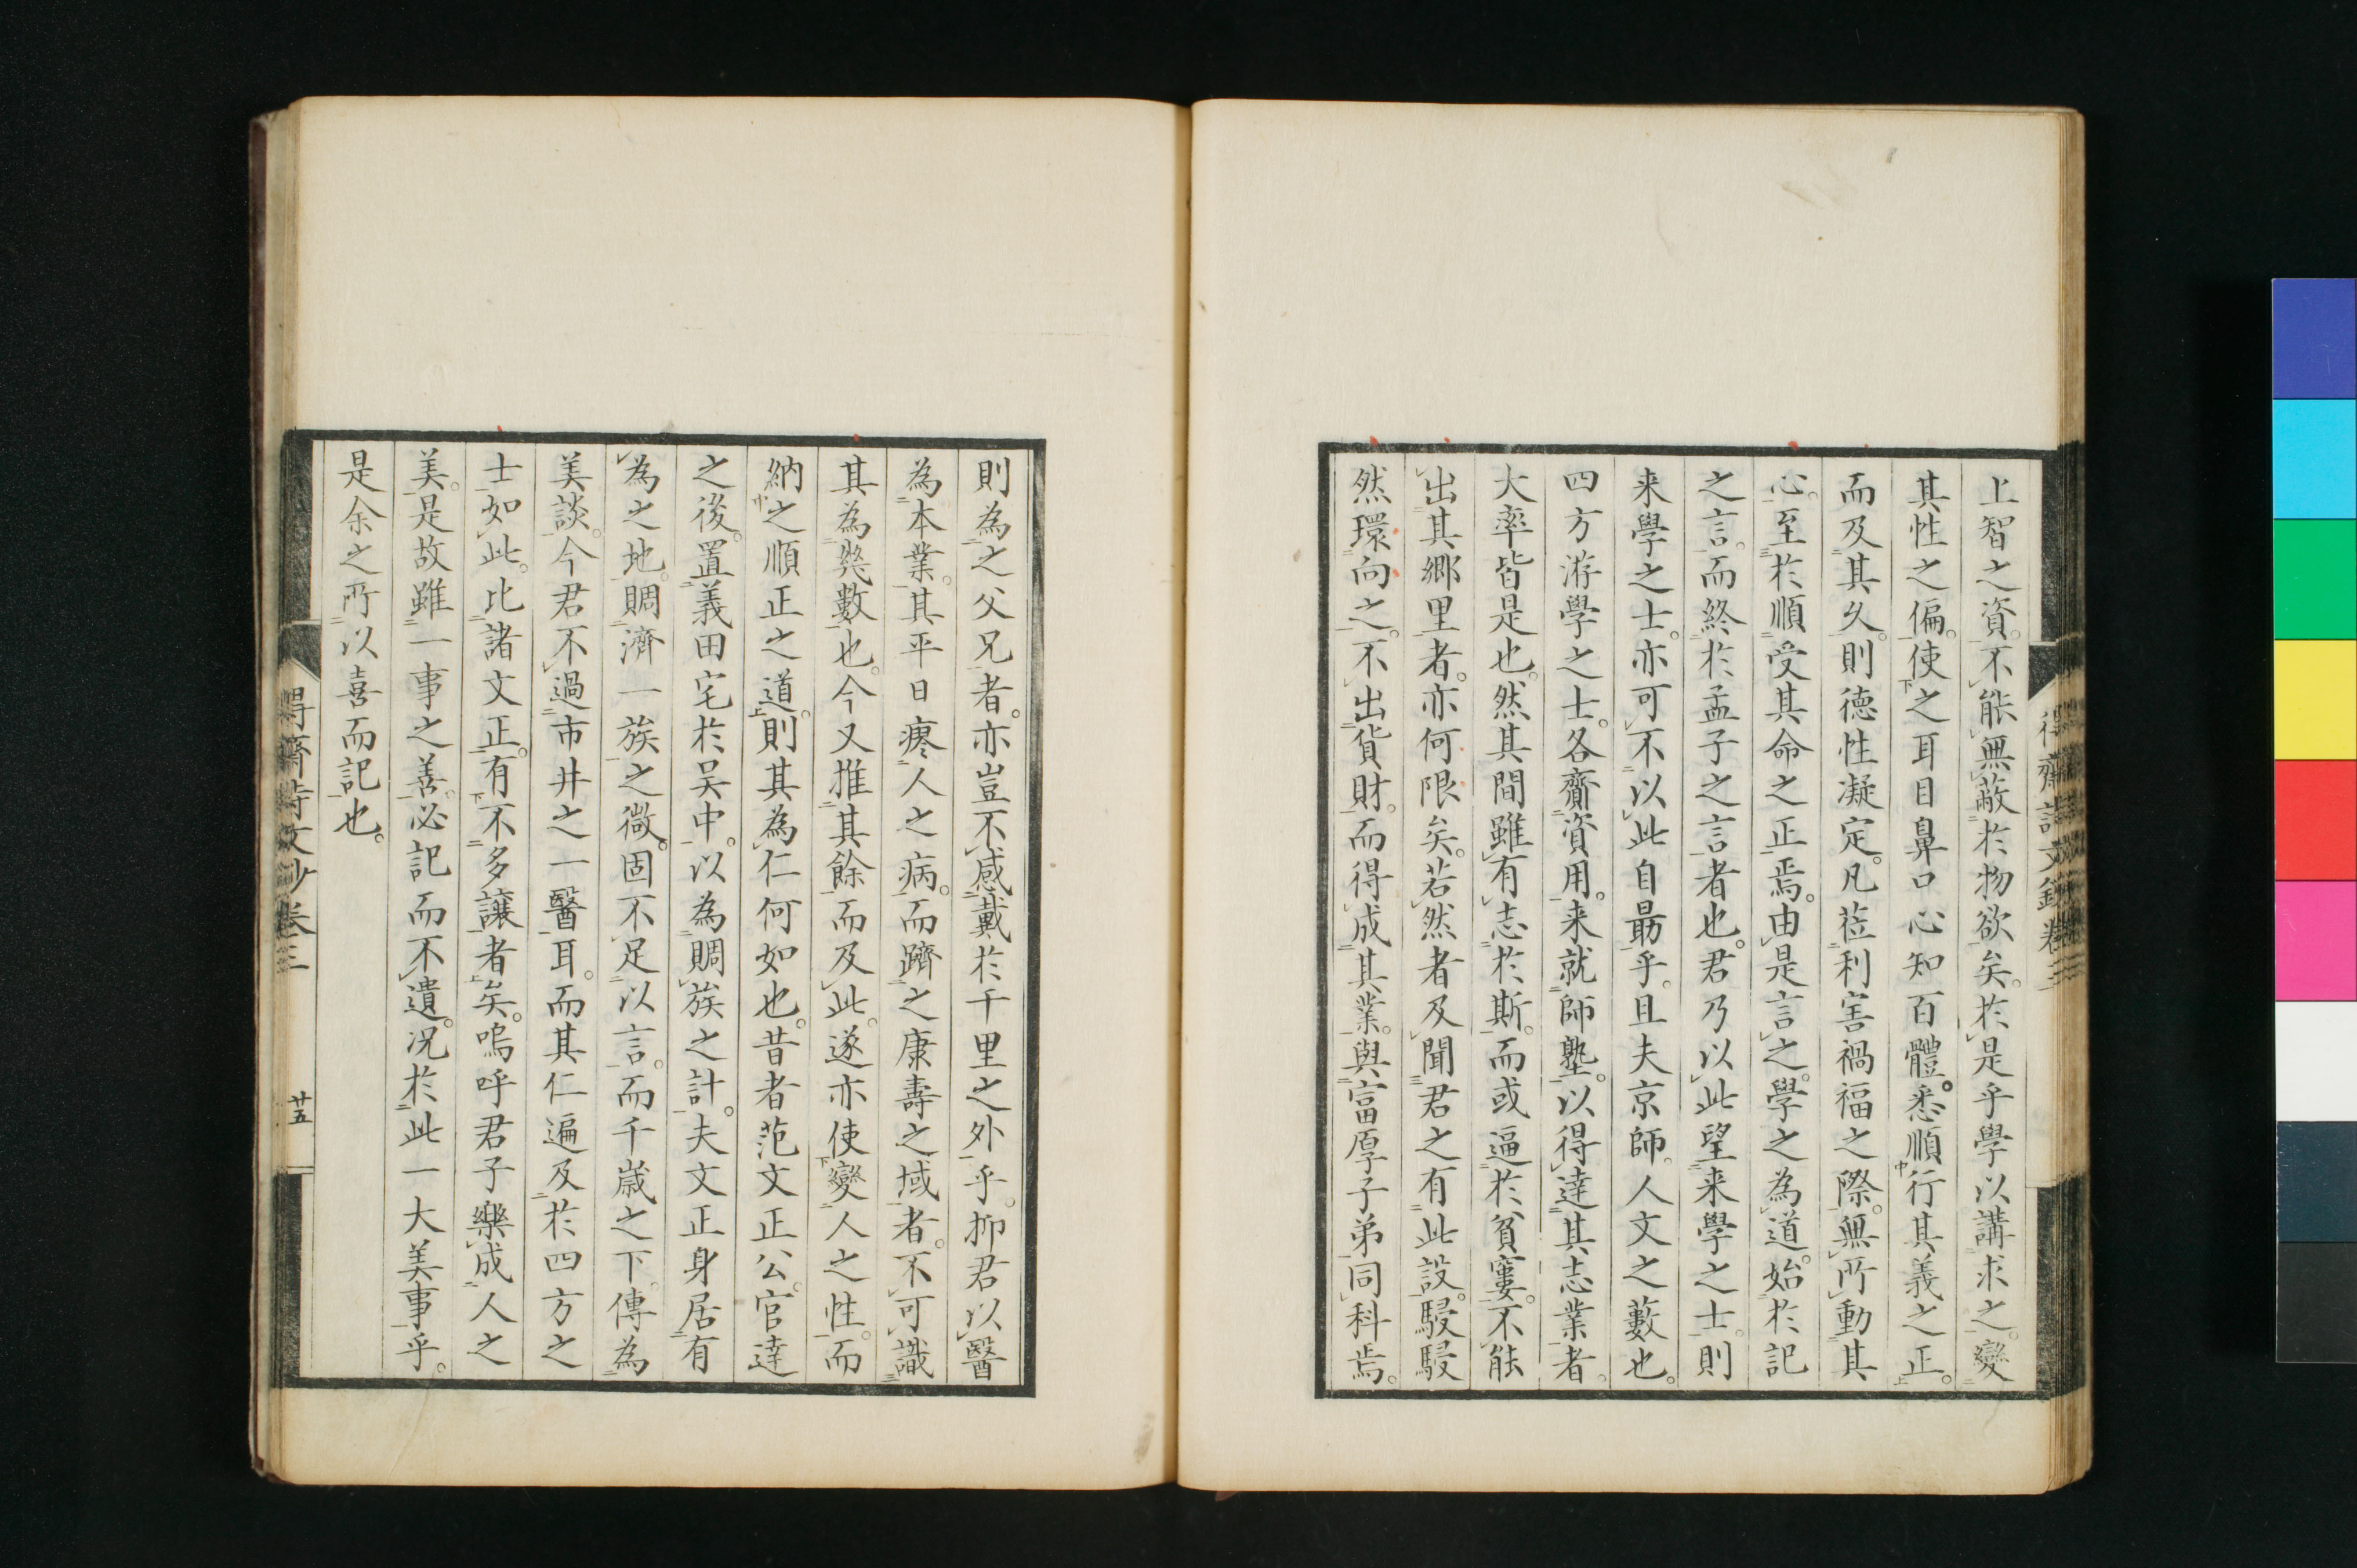 上智之資。不能無蔽於物欲矣。於是乎學以講求之。變
其性之偏。使之耳目鼻口心知百體。悉順行其義之正。
而及其久。則德性凝定。凡莅利害禍福之際。無所動其
心。至於順受其命之正焉。由是言之。學之為道。始於記
之言。而終於孟子之言者也。君乃以此望来學之士。則
来學之士。亦可不以此自勗乎。且夫京師。人文之藪也。
四方游學之士。各齎資用。来就師塾。以得達其志業者。
大率皆是也。然其間雖有志於斯。而或逼於貧窶。不能
出其鄉里者。亦何限矣。若然者及聞君之有此設。駸駸
然環向之。不出貨財。而得成其業。與富厚子弟同科焉。
則為之父兄者。亦豈不感戴於千里之外乎。抑君以醫
為本業。其平日瘳人之病。而躋之康壽之域者。不可識
其為幾數也。今又推其餘而及此。遂亦使變人之性。而
納之順正之道。則其為仁何如也。昔者范文正公。官達
之後。置義田宅於吴中。以為賙族之計。夫文正身居有
為之地。賙濟一族之微。固不足以言。而千歲之下。傳為
美談。今君不過市井之一醫耳。而其仁遍及於四方之
士如此。比諸文正。有不多讓者矣。嗚呼君子樂成人之
美。是故雖一事之善。必記而不遺。况於此一大美事乎。
是余之所以喜而記也。
得齋詩文鈔卷三
廿五